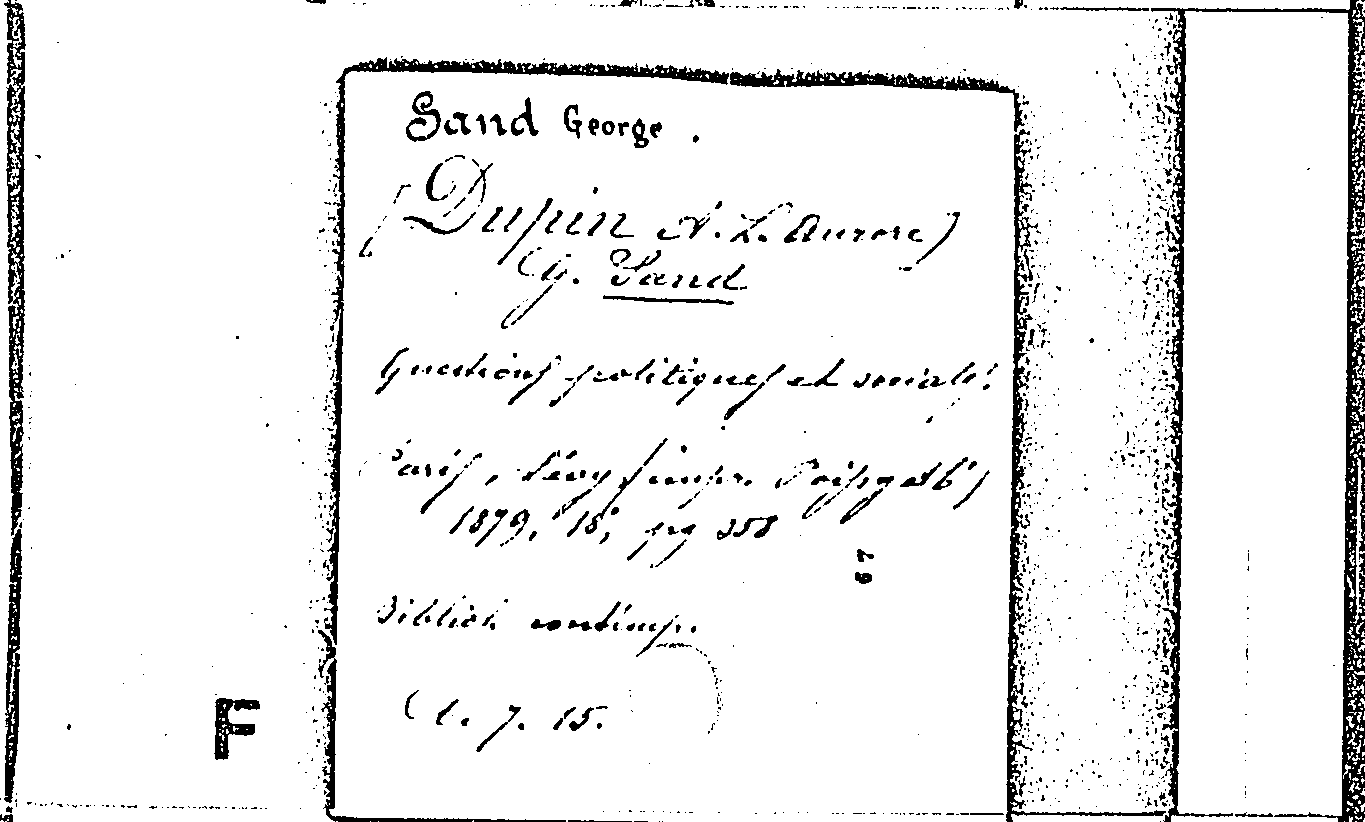 Sand George.
(Dupin A. L. Aurore)
(G. Sand
Questions politiques et sociales.
Paris, Lévy (impr.
1879, 18°, pg 358
67
Biblioth. contemp.
(1. 7. 15.
F